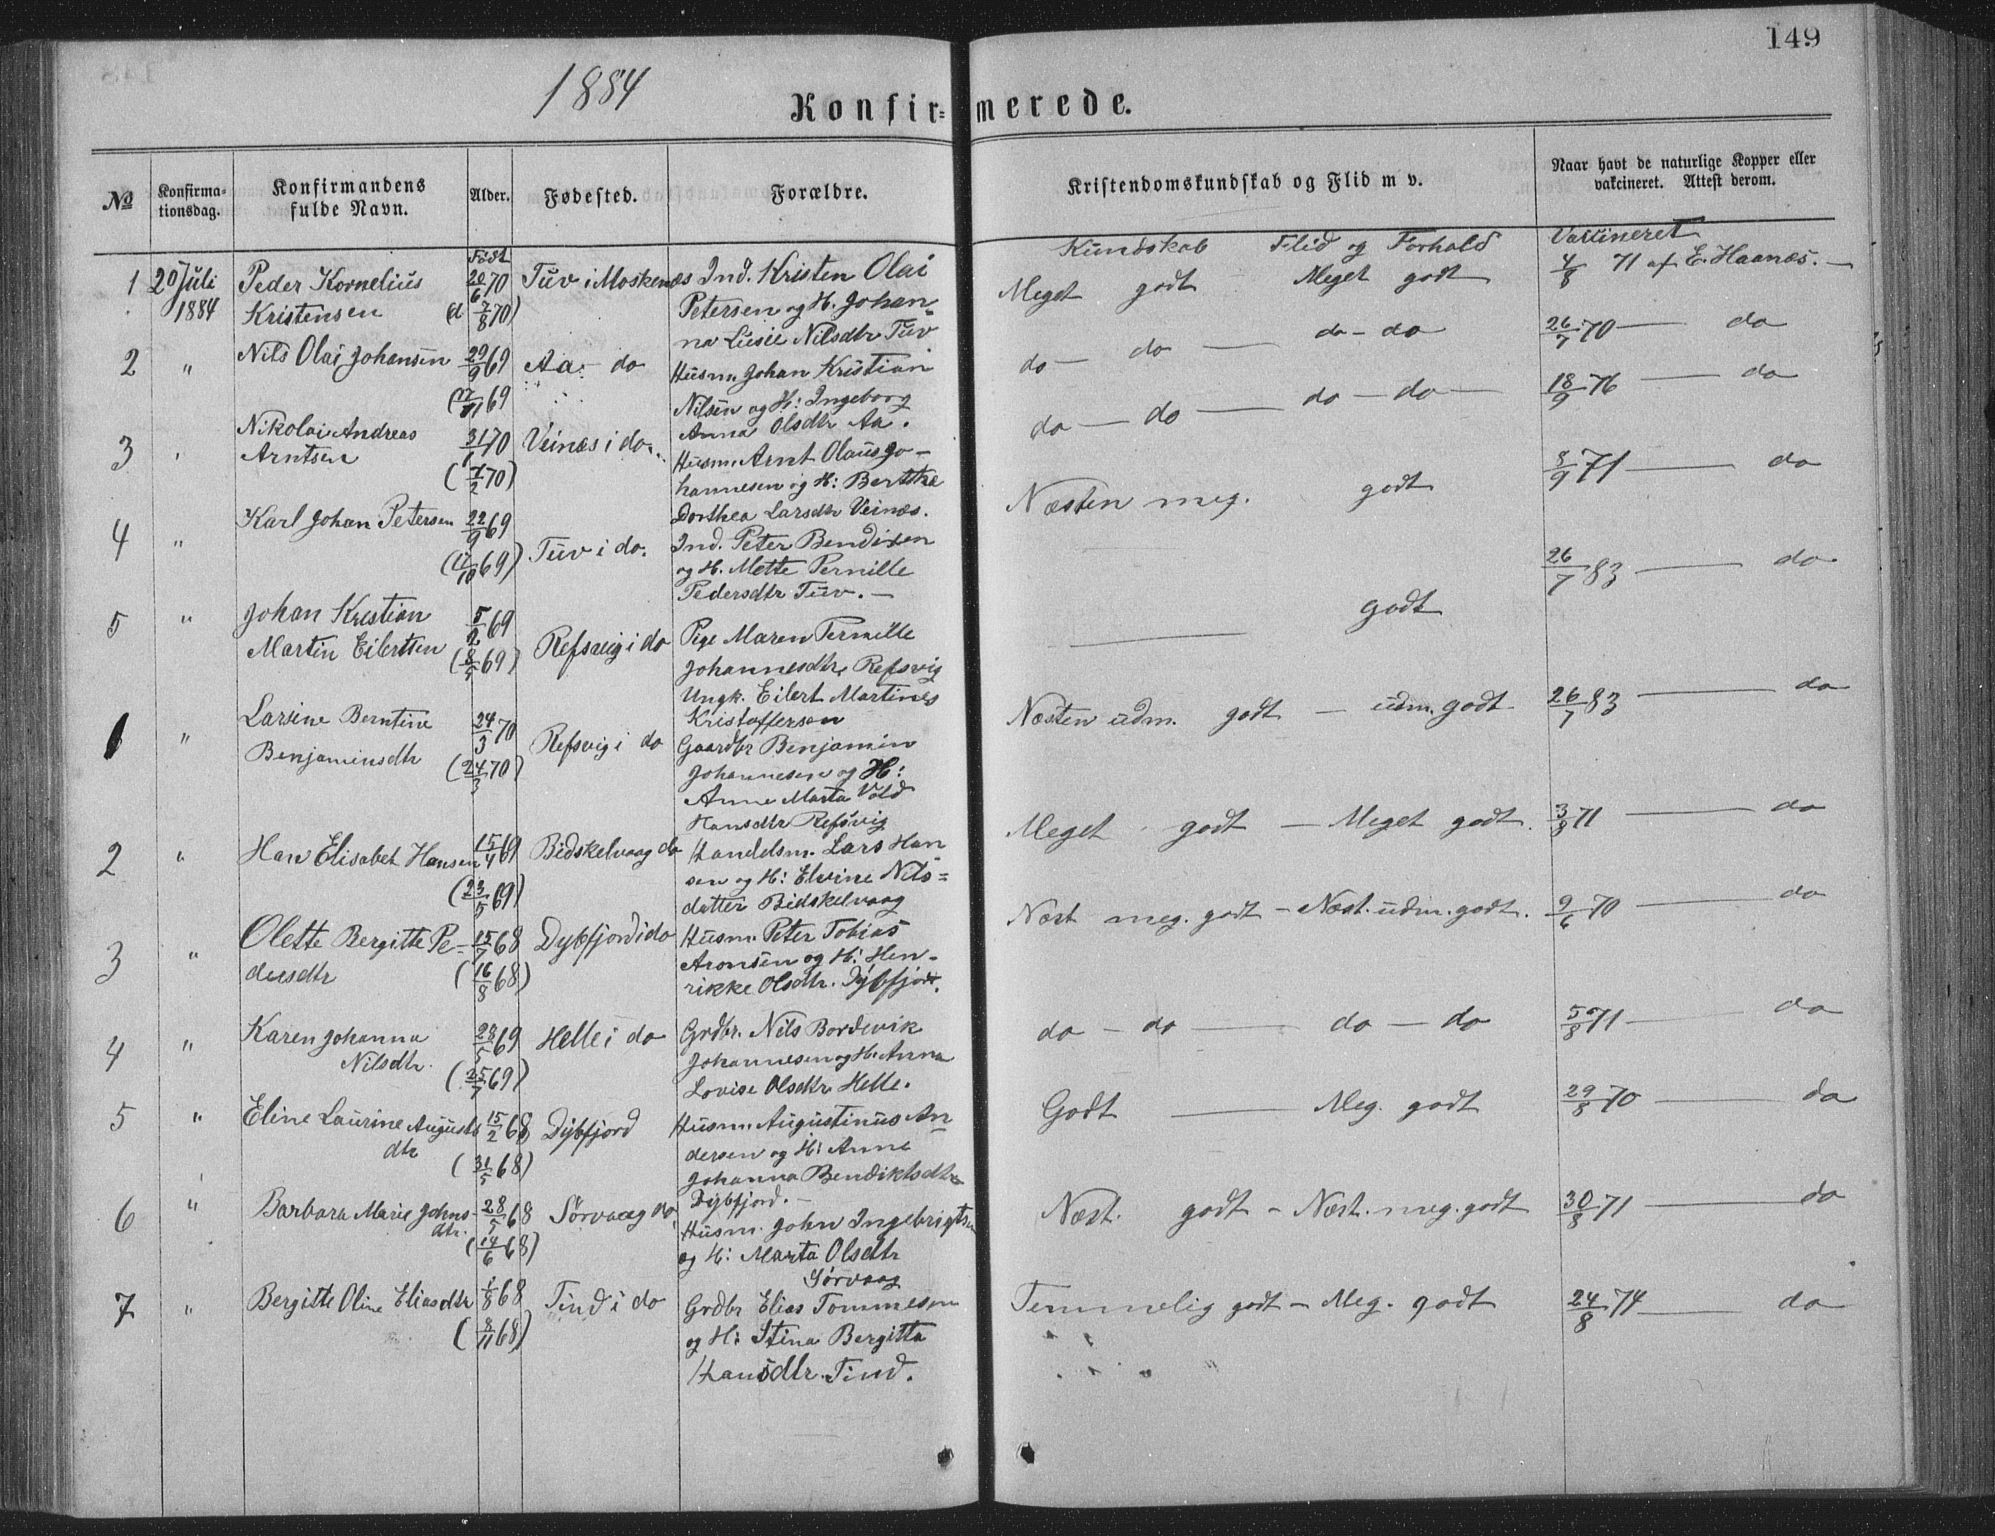 149
1884
Konfir= merede.
No
Konfirma-
tionsdag.
Konfirmandens
fulde Navn.
Alder.
Fødested.
Forældre.
Kristendomskundskab og Flid m v.
Naar havt de naturlige Kopper eller
vakcineret. Attest derom.
Født
Kundskab Flid og Forhold
Vaccineret
1 20 Juli Peder Kornelius 20/6 70 Tuv i Moskenæs Ind. Kristen Olai Meget godt Meget godt 4/8 71 af E. Haanæs. —
1884 Kristensen (d 7/8 70) Petersen og H. Johan-
na Lusie Nilsdtr Tuv
2 " Nils Olai Johansen 29/9 69 Aa - do Husm. Johan Kristian do — do — do - do 26/7 70 — do
69 Nilsen og H: Ingeborg
Anna Olsdtr Aa.
3 Nikolai Andreas 31/1 70 Veinæs i do. Husm. Arnt Olaus Jo- do — do — do — do — 18/9 76 — do
Arntsen ( /2 70) hannesen og H: Berthe
Dorthea Larsdtr Veinæs.
4 " Karl Johan Petersen 22/9 69 Tuv i do. Ind. Peter Bendixen Næsten meg. godt 8/9 71 — do
( /10 69) og H. Mette Pernille
Pedersdtr Tuv. —
5 " Johan Kristian 5/2 69 Refsvig i do Pige Maren Pernille — godt 26/7 83 — do
Martin Eilertsen (8/5 69) Johannesdtr, Refsvig
Ungk. Eilert Martines
Kristoffersen
1 " Larsine Berntine 24/3 70 Refsvig i do Gaardbr Benjamin Næsten udm. godt — udm. godt 26/7 83 — do
Benjaminsdtr (24/3 70) Johannesen og H:
Anne Marta Vold
Hansdtr Refsvig
2 " Elisabet Hansen 15/4 69 Bidskelvaag do Handelsm. Lars Han Meget godt — Meget godt. 3/8 71 — do
(23/5 69) sen og H: Elvine Nils=
datter Bidskelvaag
3 " Olette Bergitte Pe- 15/7 68 Dybfjord i do Husm. Peter Tobias Næst meg. godt — Næst. udm. godt. 9/6 70 — do
dersdtr (16/8 68) Aronsen og H: Hen-
rikke Olsdtr. Dybfjord.
4 " Karen Johanna 28/5 69 Helle i do Grdbr. Nils Bordevik do — do — do — do 5/8 71 — do
Nilsdtr. (25/7 69) Johannesen og H. Anna
Lovise Olsdtr Helle.
5 " Eline Laurine Augusts 15/2 68 Dybfjord Husm. Augustinus An Godt — Meg. godt 29/8 70 — do
dtr (31/5 68) dersen og H: Anne
Johanna Bendiktsdtr
Dybfjord. —
6 " Barbara Marie Johns- 28/5 68 Sørvaag do Husm. John Ingebrigtsen Næst. godt — Næst. meg. godt 30/8 71 — do
dtr. (14/6 68) og H: Marta Olsdtr
Sørvaag
7 " Bergitte Oline Eliasdtr 1/8 68 Tind i do Grdbr Elias Tommesen Temmelig godt — Meg. godt 24/8 74 — do
(8/11 68) og H: Stina Bergitta
Hansdtr. Tind.